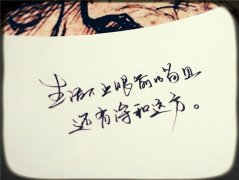 生活不止眼前的苟且
还有诗和远方。